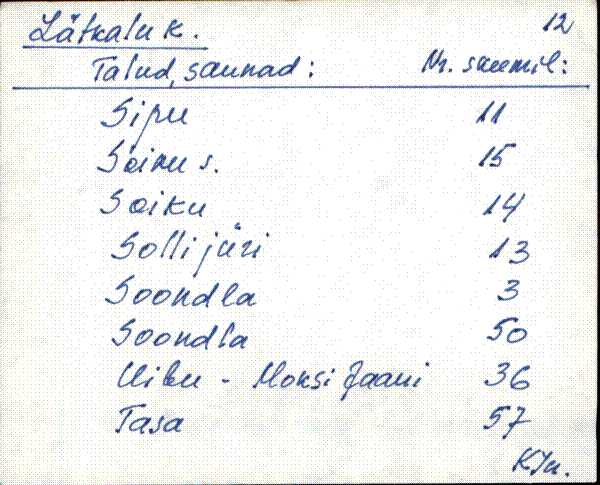 Lätkalu k. 12
Talud, saunad: Nr. skeemil:
Sipu 11
Soiku s. 15
Soiku 14
Sollijüri 13
Soondla 3
Soondla 50
Uibu - Moksi Jaani 36
Tasa 57